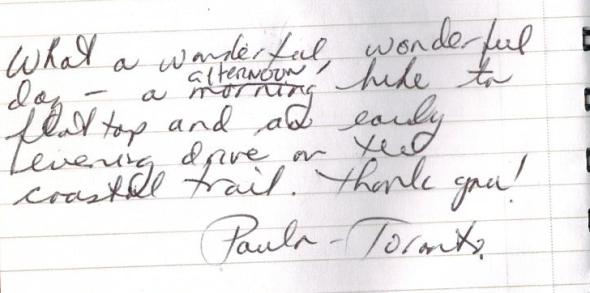 What a wonderful, wonderful
afternoon
day - a morning hike to
flattop and an early
evening drive on the
coastal trail. Thank you!
Paula - Toronto.